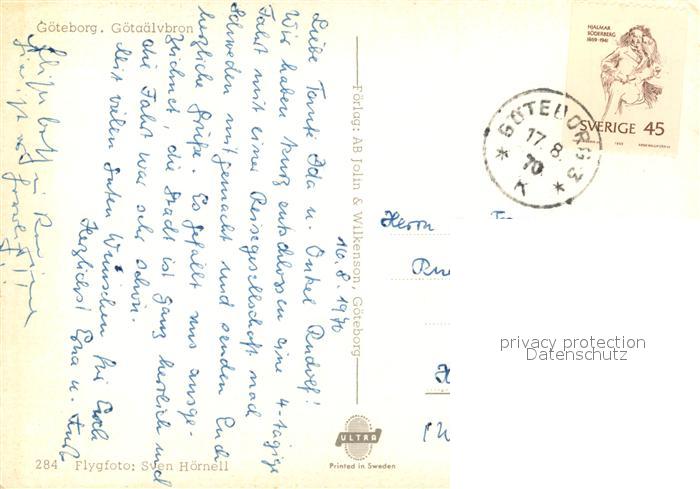 Göteborg. Götaälvbron
16.8.1970
Liebe Tante Ida u. Onkel Rudolf!
Wir haben kurz entschlossen eine 4-tägige
Fahrt mit einer Reisegesellschaft nach
Schweden mitgemacht und senden Euch
herzliche Grüße. Es gefällt uns ausge-
zeichnet, die Stadt ist ganz herrlich und
die Fahrt war sehr schön.
Mit vielen guten Wünschen für Euch
Herzlichst Erna u.
284 Flygfoto: Sven Hörnell
Förlag: AB Jolin & Wilkenson, Göteborg
ULTRA
Printed in Sweden
HJALMAR
SÖDERBERG
1869-1941
SVERIGE 45
GÖTEBORG 3
17.8.
70
K
Herrn
privacy protection
Datenschutz